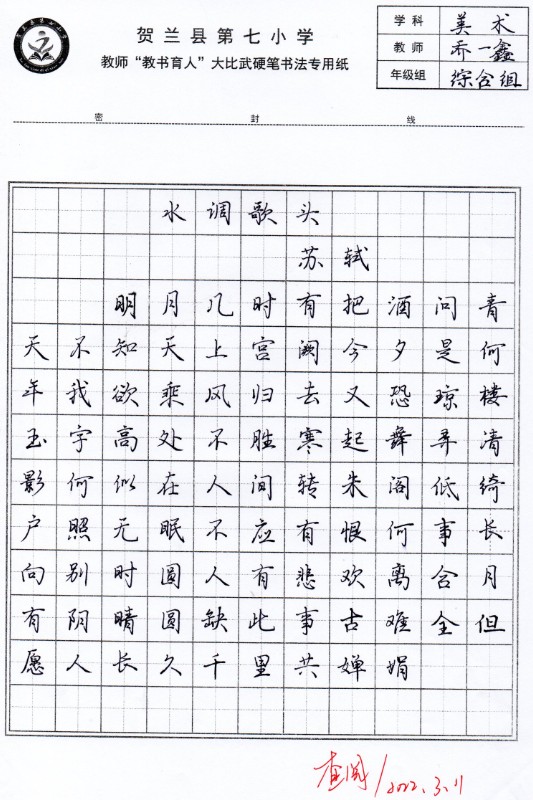 贺兰县第七小学
教师“教书育人”大比武硬笔书法专用纸
学科 美术
教师 乔一鑫
年级组 综合组
密 封 线
水调歌头
苏轼
明月几时有把酒问青
天不知天上宫阙今夕是何
年我欲乘风归去又恐琼楼
玉宇高处不胜寒起舞弄清
影何似在人间转朱阁低绮
户照无眠不应有恨何事长
向别时圆人有悲欢离合月
有阴晴圆缺此事古难全但
愿人长久千里共婵娟
查阅/2022.3.11